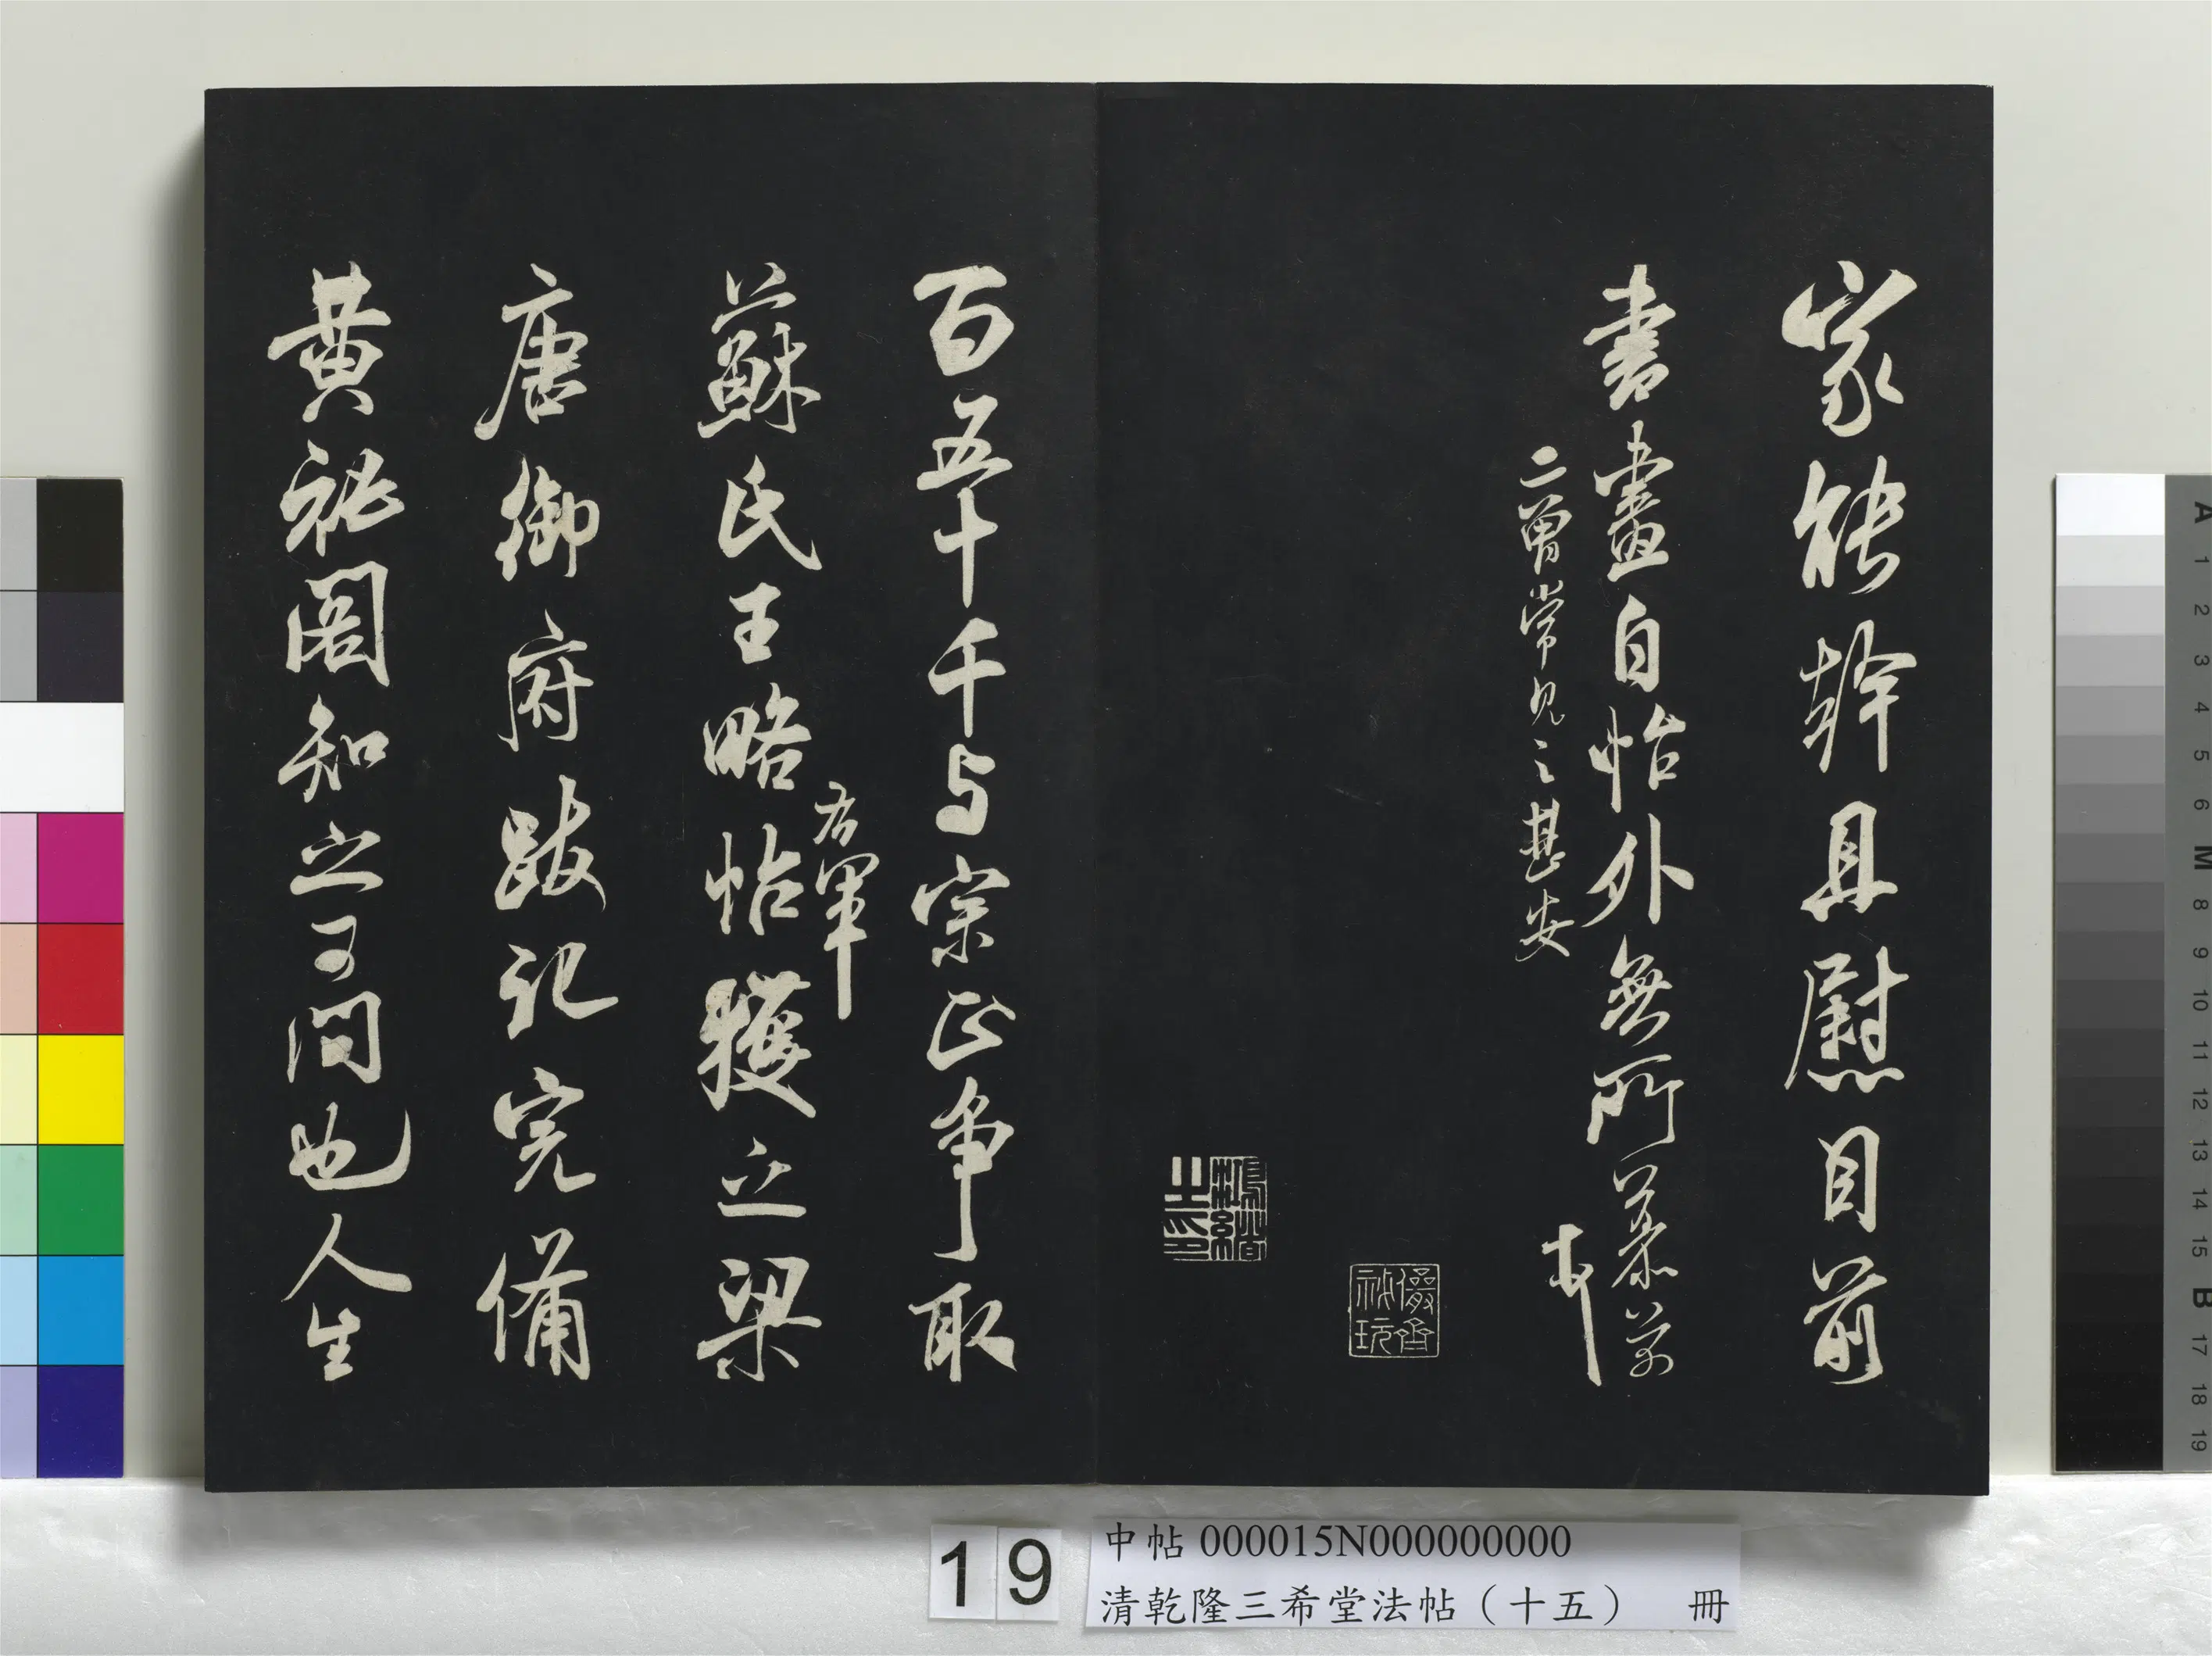 家能幹且慰目前
書畫自怡外無所慕
二曾常見之甚安
芾
儼齋秘玩
鴻緒之印
百五十千与宗正争取
右軍
蘇氏王略帖獲之梁
唐御府跋記完備
黄祕閣知之可問也人生
19
中帖 000015N000000000
清乾隆三希堂法帖（十五） 冊
A 1 2 3 4 5 6 M 8 9 10 11 12 13 14 15 B 17 18 19